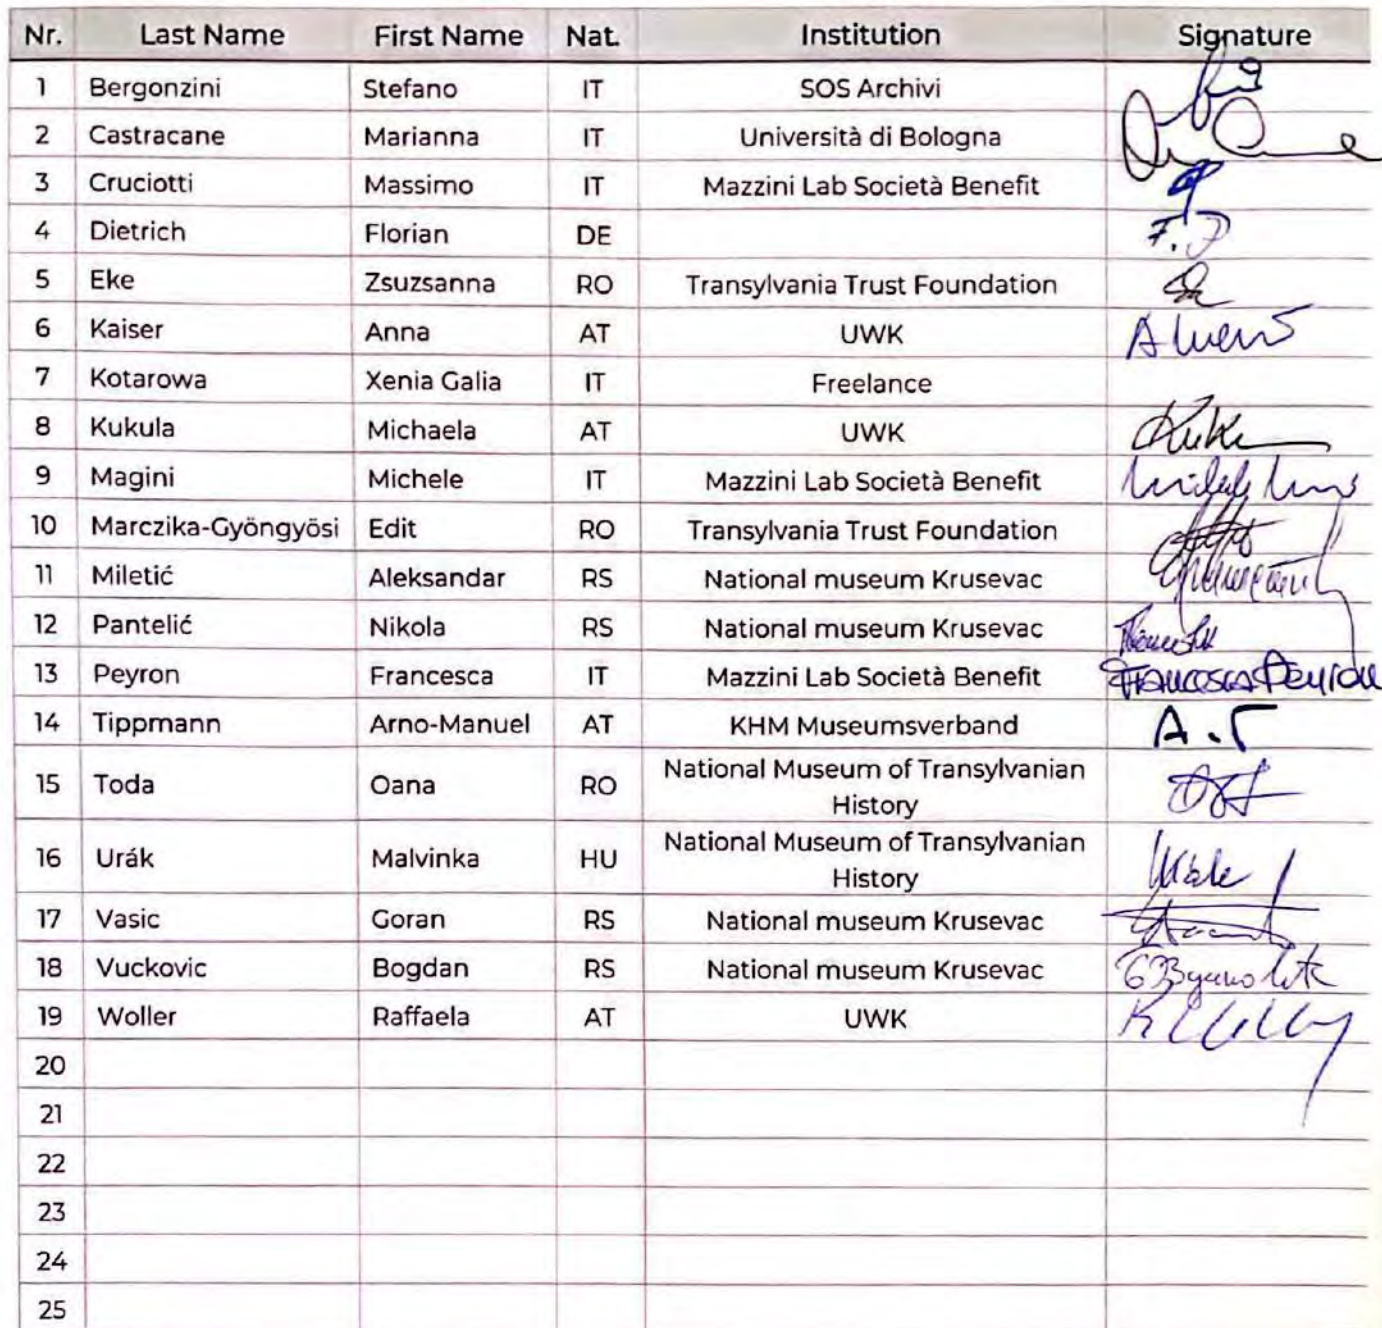 Nr. Last Name First Name Nat. Institution Signature
1 Bergonzini Stefano IT SOS Archivi
2 Castracane Marianna IT Università di Bologna
3 Cruciotti Massimo IT Mazzini Lab Società Benefit
4 Dietrich Florian DE F. D
5 Eke Zsuzsanna RO Transylvania Trust Foundation
6 Kaiser Anna AT UWK
7 Kotarowa Xenia Galia IT Freelance
8 Kukula Michaela AT UWK
9 Magini Michele IT Mazzini Lab Società Benefit
10 Marczika-Gyöngyösi Edit RO Transylvania Trust Foundation
11 Miletić Aleksandar RS National museum Krusevac
12 Pantelić Nikola RS National museum Krusevac
13 Peyron Francesca IT Mazzini Lab Società Benefit Francesca Peyron
14 Tippmann Arno-Manuel AT KHM Museumsverband A. T
15 Toda Oana RO National Museum of Transylvanian
History
16 Urák Malvinka HU National Museum of Transylvanian
History
17 Vasic Goran RS National museum Krusevac
18 Vuckovic Bogdan RS National museum Krusevac
19 Woller Raffaela AT UWK
20
21
22
23
24
25